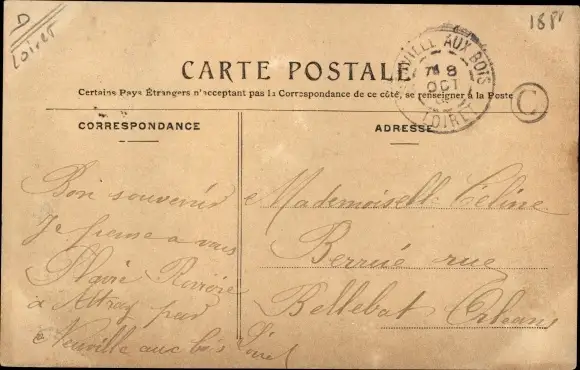 D
Loiret
18 f
CARTE POSTALE
Certains Pays Étrangers n'acceptant pas la Correspondance de ce côté, se renseigner à la Poste
NEUVILLE AUX BOIS
8
OCT
LOIRET
C
CORRESPONDANCE
ADRESSE
Bon souvenir
Je pense a vous
à Attray par
Neuville aux bois Loiret
Mademoiselle Céline
Berrué rue
Bellebat Orleans